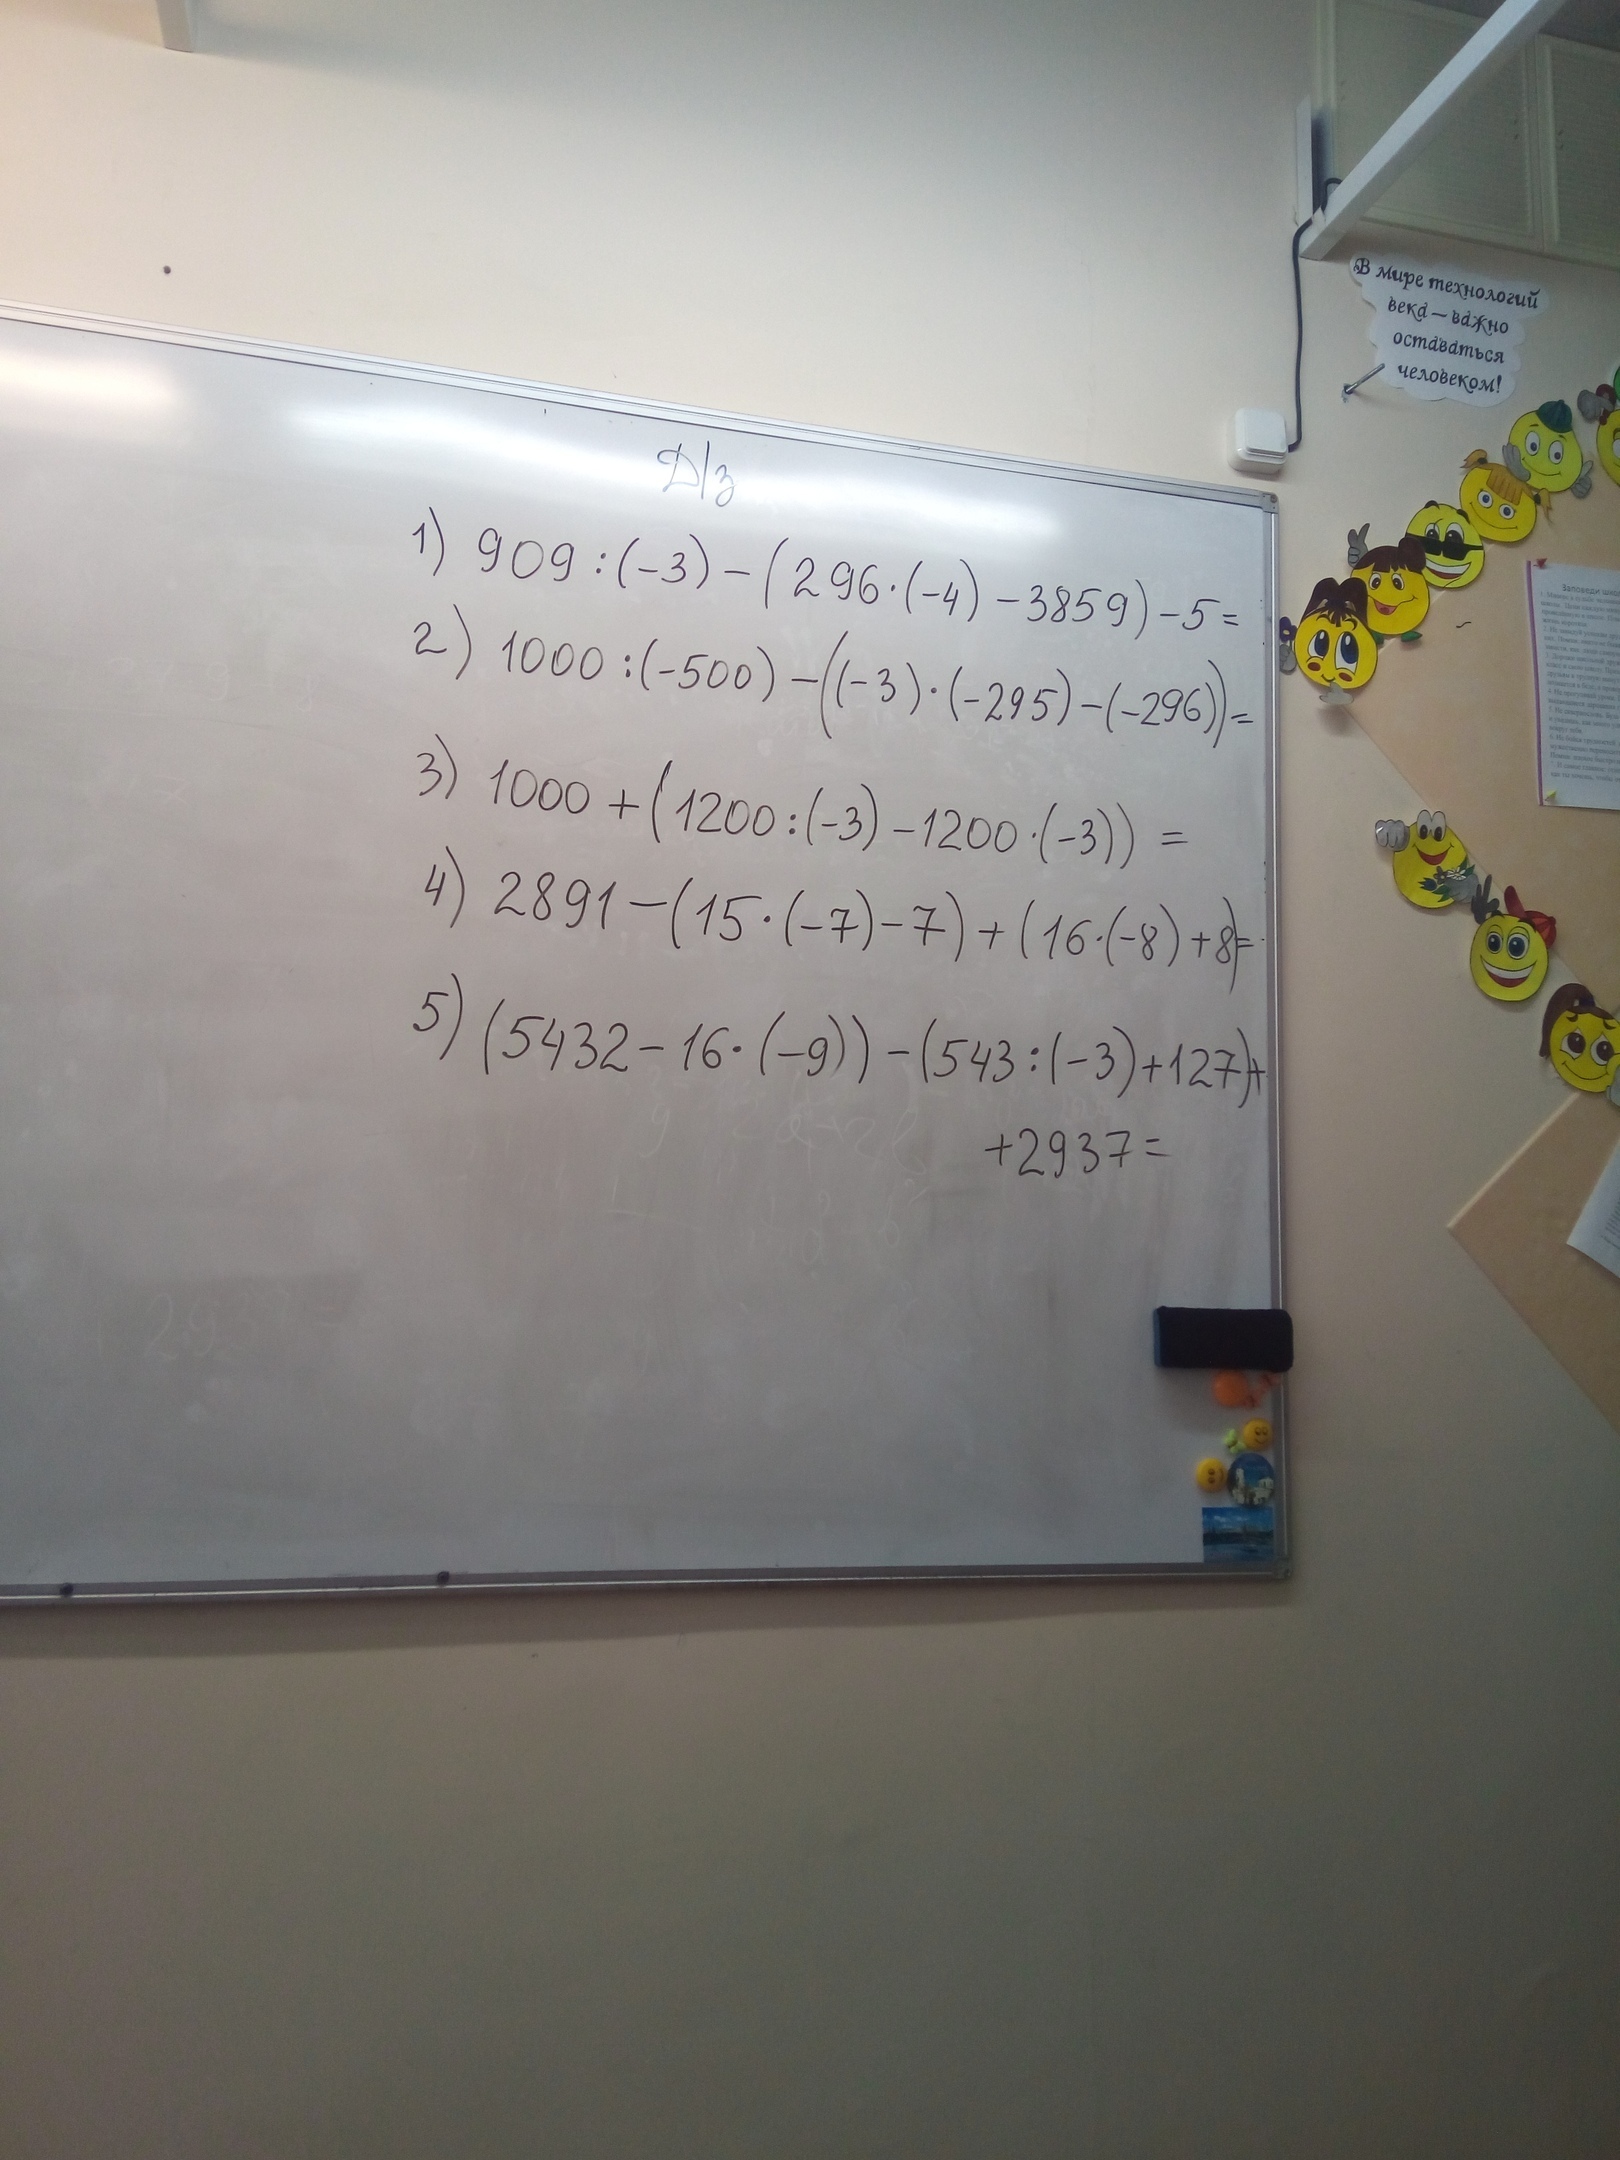 Д/з
1) 909 : (-3) - (296 · (-4) - 3859) - 5 =
2) 1000 : (-500) - ((-3) · (-295) - (-296)) =
3) 1000 + (1200 : (-3) - 1200 · (-3)) =
4) 2891 - (15 · (-7) - 7) + (16 · (-8) + 8) =
5) (5432 - 16 · (-9)) - (543 : (-3) + 127) +
+ 2937 =
В мире технологий
века – важно
оставаться
человеком!